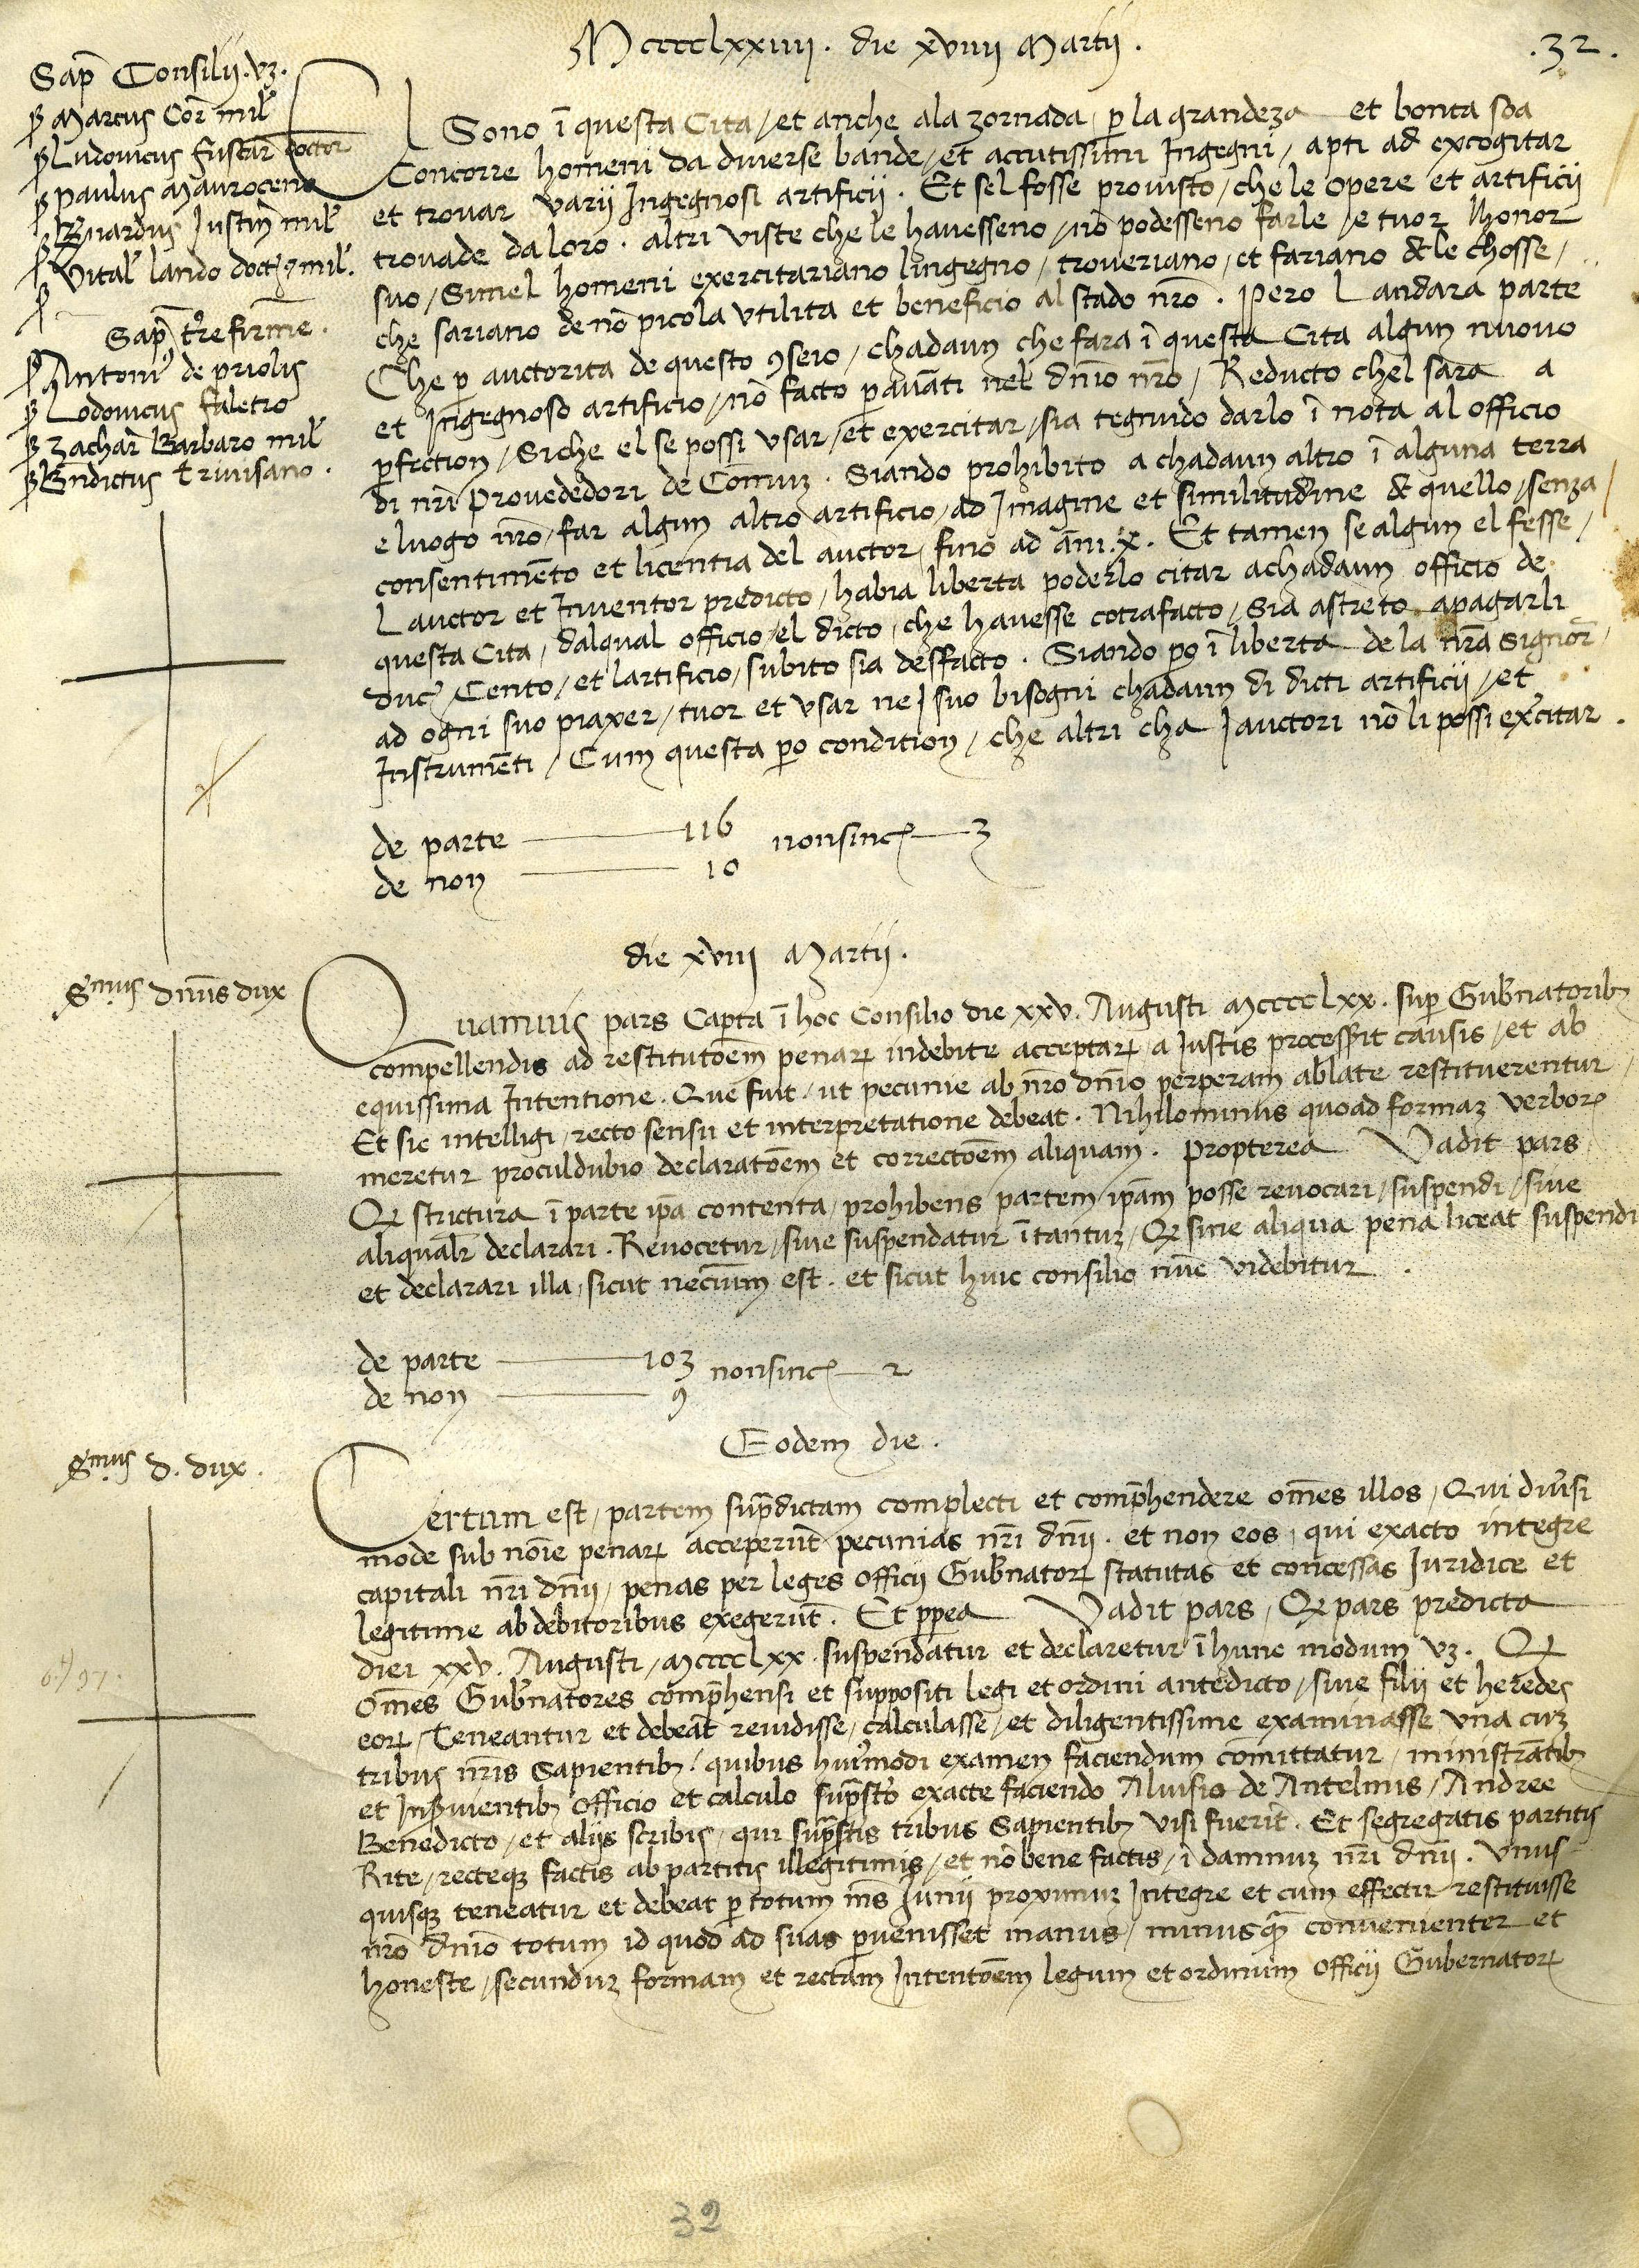 Mcccclxxiiii. die xviiii Martii.
.32.
Sap̄ Consilii. vꝫ.
Marcus Cor̄ mil̄
Ludovicus fuscar̄ doctor
paulus Mauroceno
Bn̄ardus Justiñ mil̄
Vital̄ lando doct̄ ⁊ mil̄.
Sap̄ tr̄e firme.
Antoniꝰ de priolis
Lodovicus faletro
zachar̄ Barbaro mil̄
Bn̄dictus trivisano.
El Sono ī questa Cita / et anche ala zornada ꝑ la grandeza et bonta soa
Concorre homeni da diverse bande / et accutissimi Ingegni / apti ad excogitar
et trovar varij Ingegnosi artificij. Et sel fosse provisto / che le opere et artificij
trovade da loro. altri viste che le havesseno / nō podesseno farle / e tuor lhonor
suo / Simel homeni exercitariano lingegno / troveriano / et fariano de le chosse /
che sariano de nō picola utilita et beneficio al stado nr̄o. Pero Landara parte
Che ꝑ auctorita de questo ꝯseio / chadaun che fara ī questa Cita algun nuovo
et Ingegnoso artificio / nō facto ꝑavāti nel dn̄io nr̄o / Reducto chel sara a
ꝑfection / Siche el se possi usar / et exercitar / sia tegnudo darlo ī nota al officio
di nr̄i provededori de Comūꝫ. Siando prohibito a chadaun altro ī alguna terra
e luogo nr̄o / far algun altro artificio / ad Imagine et similitudine de quello / senza
consentimēto et licentia del auctor / fino ad ani .x. Et tamen se algun el fesse /
L auctor et Inventor predicto / habia liberta poderlo citar a chadaun officio de
questa Cita / dalqual officio / el dicto / che havesse cōtrafacto / Sia astreto apagarli
ducͭ Cento / et lartificio / subito sia desfacto. Siando ꝑo ī liberta de la nr̄a Signor̄ /
ad ogni suo piaxer / tuor et usar ne I suo bisogni chadaun di dicti artificij / et
Instrumēti / Cum questa ꝑo condition / che altri cha I auctori nō li possi exercitar.
de parte 116 nonsinc̄ 3
de non 10
die xviii Martii.
Smus dn̄us dux
Quamvis pars Capta ī hoc Consilio die xxv. Augusti mcccclxx. suꝑ Gub̄natoribꝫ
compellendis ad restitutōem penaꝝ indebite acceptaꝝ / a Justis processit causis / et ab
equissima Intentione. Que fuit / ut pecunie ab nr̄o dn̄io perperam ablate restituerentur /
Et sic intelligi / recto sensu et interpretatione debeat. Nihilominus quoad formaꝫ verboꝝ
meretur proculdubio declaratōem et correctōem aliquam. Propterea Vadit pars
Qꝫ strictura ī parte ip̄a contenta / prohibens partem ip̄am posse revocari / suspendi / sive
aliqualr̄ declarari. Revocetur / sive suspendatur ī tantuꝫ / Qꝫ sine aliqua pena liceat suspendi
et declarari illa / sicut necīum est. et sicut huic consilio nūc videbitur.
de parte 103 nonsinc̄ 2
de non 9
Eodem die.
Smus d. dux.
Certum est / partem sup̄dictam complecti et comp̄hendere om̄es illos / Qui div̄si
mode sub noīe penaꝝ acceperūt pecunias nr̄i dn̄ii. et non eos / qui exacto integre
capitali nr̄i dn̄ii / penas per leges officij Gub̄natoꝝ statutas et concessas Iuridice et
legitime ab debitoribus exegerūt. Et ꝓpea Vadit pars / Qꝫ pars predicta
diei xxv. Augusti / mcccclxx. suspendatur et declaretur ī hunc modum vꝫ. Qꝫ
Om̄es Gub̄natores comp̄hensi et suppositi legi et ordini antedicto / sive filij et heredes
eoꝝ / Teneantur et debeāt revidisse / calculasse / et diligentissime examinasse una cuꝫ
tribus nr̄is Sapientibꝫ / quibus huiꝰmodi examen faciendum comittatur / ministrātibꝫ
et Inẜvientibꝫ officio et calculo sup̄sto exacte faciendo Aluisio de Antelmis / Andree
Benedicto / et alijs scribis / qui sup̄stis tribus Sapientibꝫ visi fuerīt. Et segregatis partitis
Rite / recteqꝫ factis ab partitis illegitimis / et nō bene factis / ī damnuꝫ nr̄i dn̄ii. Unus
quisqꝫ teneatur et debeat ꝑ totum mēs Junij proximuꝫ Integre et cum effectu restituisse
nr̄o dn̄io totum id quod ad suas ꝑvenisset manus / minusqꝫ convenienter et
honeste / secunduꝫ formam et rectam Intentōem legum et ordinum officij Gubernatoꝝ
32